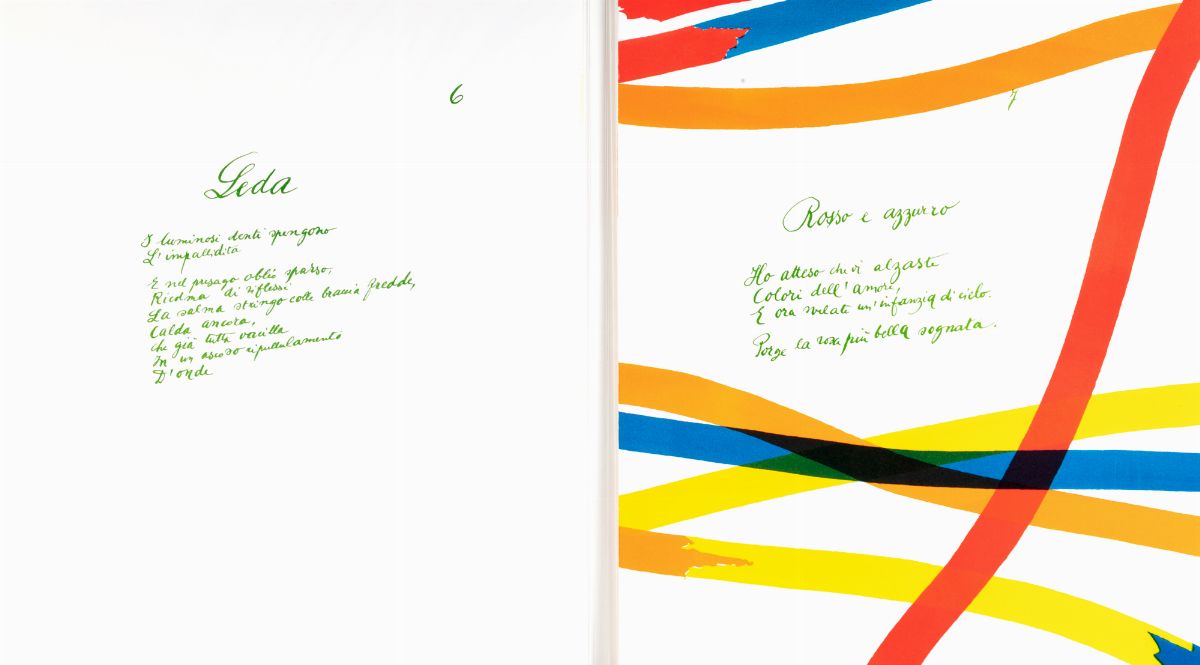 6
Leda
I luminosi denti spengono
L'impallidita
E nel presago oblio sparso,
Ricolma di riflessi
La salma stringo colle braccia fredde,
Calda ancora,
che già tutta vacilla
In un ascoso ripullulamento
D'onde
7
Rosso e azzurro
Ho atteso che vi alzaste
Colori dell'amore,
E ora svelate un'infanzia di cielo.
Porge la rosa più bella sognata.